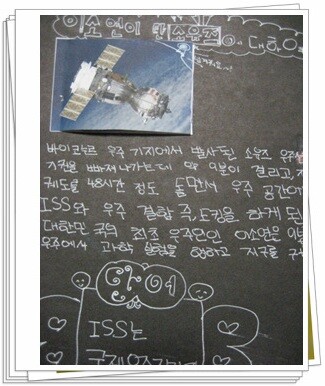 이소연이 탄 소유즈에 대하여
바이코누르 우주 기지에서 발사된 소유즈 우주
지권을 빠져나가는데 약 9분이 걸리고, 지
궤도를 48시간 정도 돌면서 우주 공간에
ISS와 우주 결합 즉, 도킹을 하게 된
대한민국의 최초 우주인인 이소연은 9일
우주에서 과학 실험을 행하고 지구로 귀
ISS는
국제우주정거